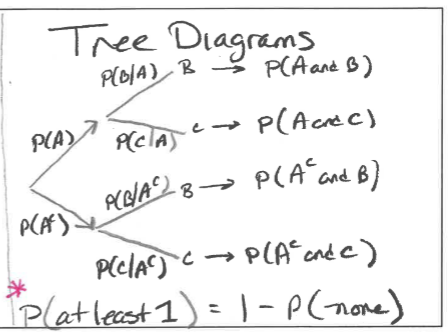 Tree Diagrams
P(B/A) B → P(A and B)
P(A) P(C/A) C → P(A and C)
P(B/A^c) B → P(A^c and B)
P(A^c)
P(C/A^c) C → P(A^c and C)
* P(at least 1) = 1 - P(none)